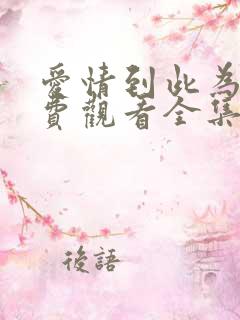 愛情到此為
費觀看全集
後語